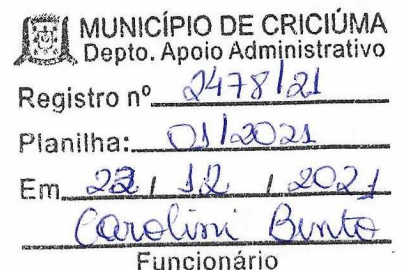 MUNICÍPIO DE CRICIÚMA
Depto. Apoio Administrativo
Registro nº 2478/21
Planilha: 01/2021
Em 22 / 12 / 2021
Carolini Bento
Funcionário